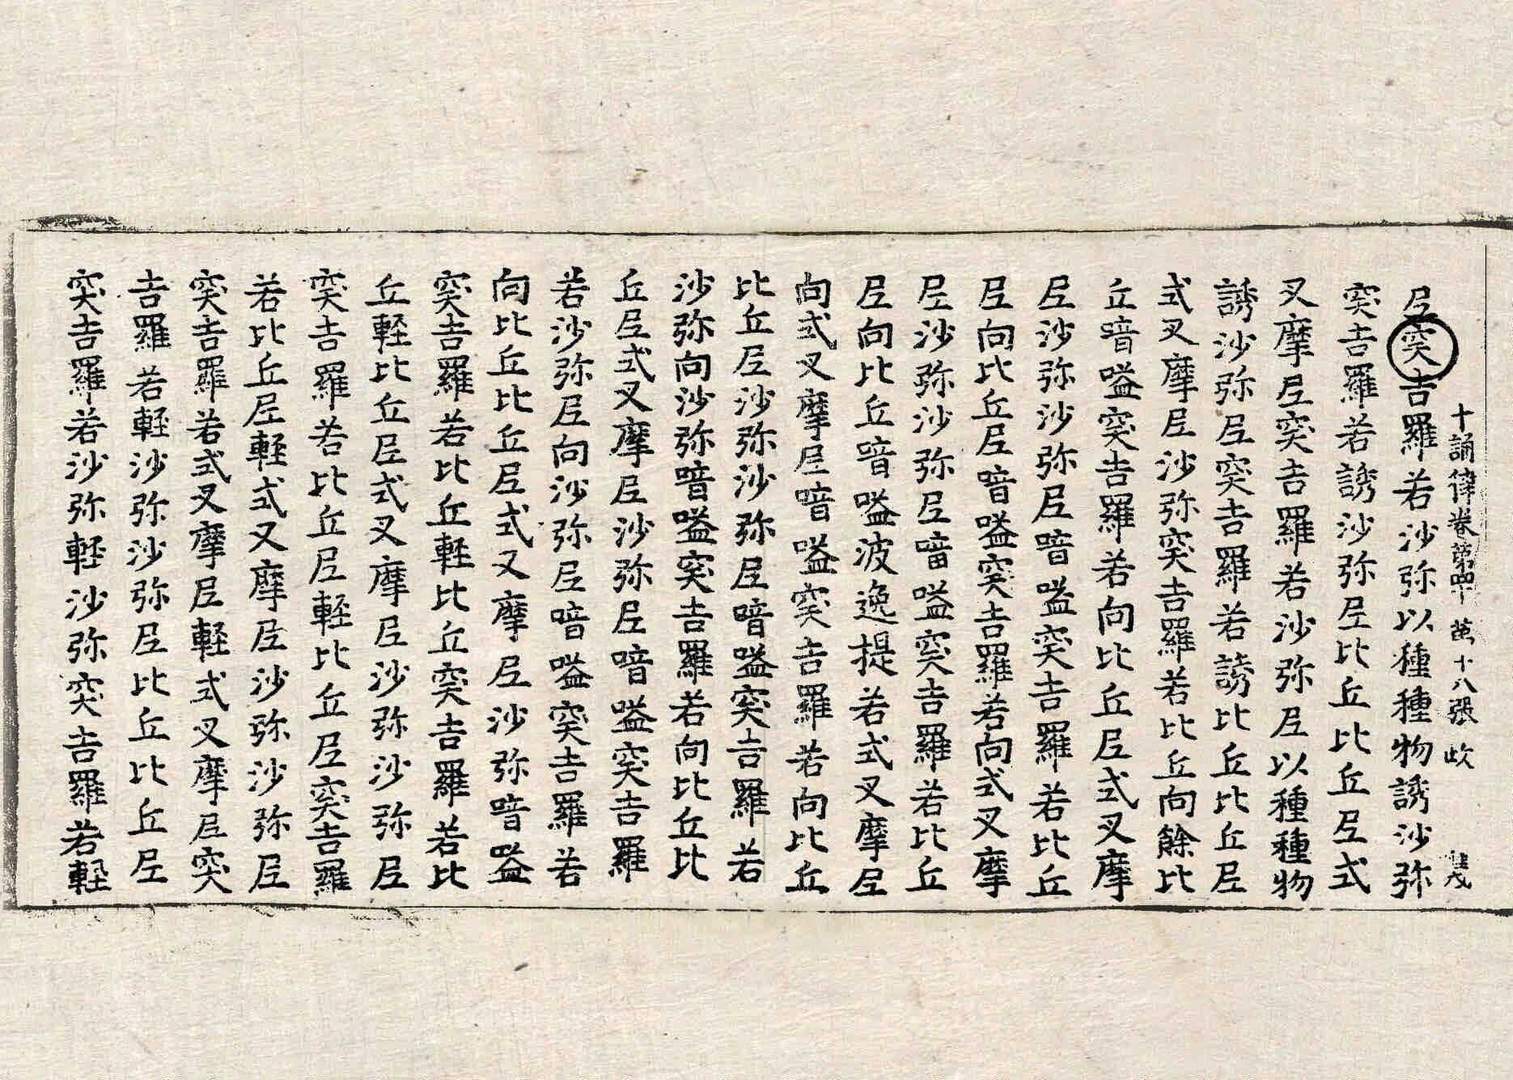 十誦律卷第四十 苐十八張
尼突吉羅若沙弥以種種物誘沙弥
突吉羅若誘沙弥尼比丘比丘尼式
叉摩尼突吉羅若沙弥尼以種種物
誘沙弥尼突吉羅若誘比丘比丘尼
式叉摩尼沙弥突吉羅若比丘向餘比
丘喑嗌突吉羅若向比丘尼式叉摩
尼沙弥沙弥尼喑嗌突吉羅若比丘
尼向比丘尼喑嗌突吉羅若向式叉摩
尼沙弥沙弥尼喑嗌突吉羅若比丘
尼向比丘喑嗌波逸提若式叉摩尼
向式叉摩尼喑嗌突吉羅若向比丘
比丘尼沙弥沙弥尼喑嗌突吉羅若
沙弥向沙弥喑嗌突吉羅若向比丘比
丘尼式叉摩尼沙弥尼喑嗌突吉羅
若沙弥尼向沙弥尼喑嗌突吉羅若
向比丘比丘尼式叉摩尼沙弥喑嗌
突吉羅若比丘軽比丘突吉羅若比
丘軽比丘尼式叉摩尼沙弥沙弥尼
突吉羅若比丘尼軽比丘尼突吉羅
若比丘尼軽式叉摩尼沙弥沙弥尼
突吉羅若式叉摩尼軽式叉摩尼突
吉羅若軽沙弥沙弥尼比丘比丘尼
突吉羅若沙弥軽沙弥突吉羅若軽